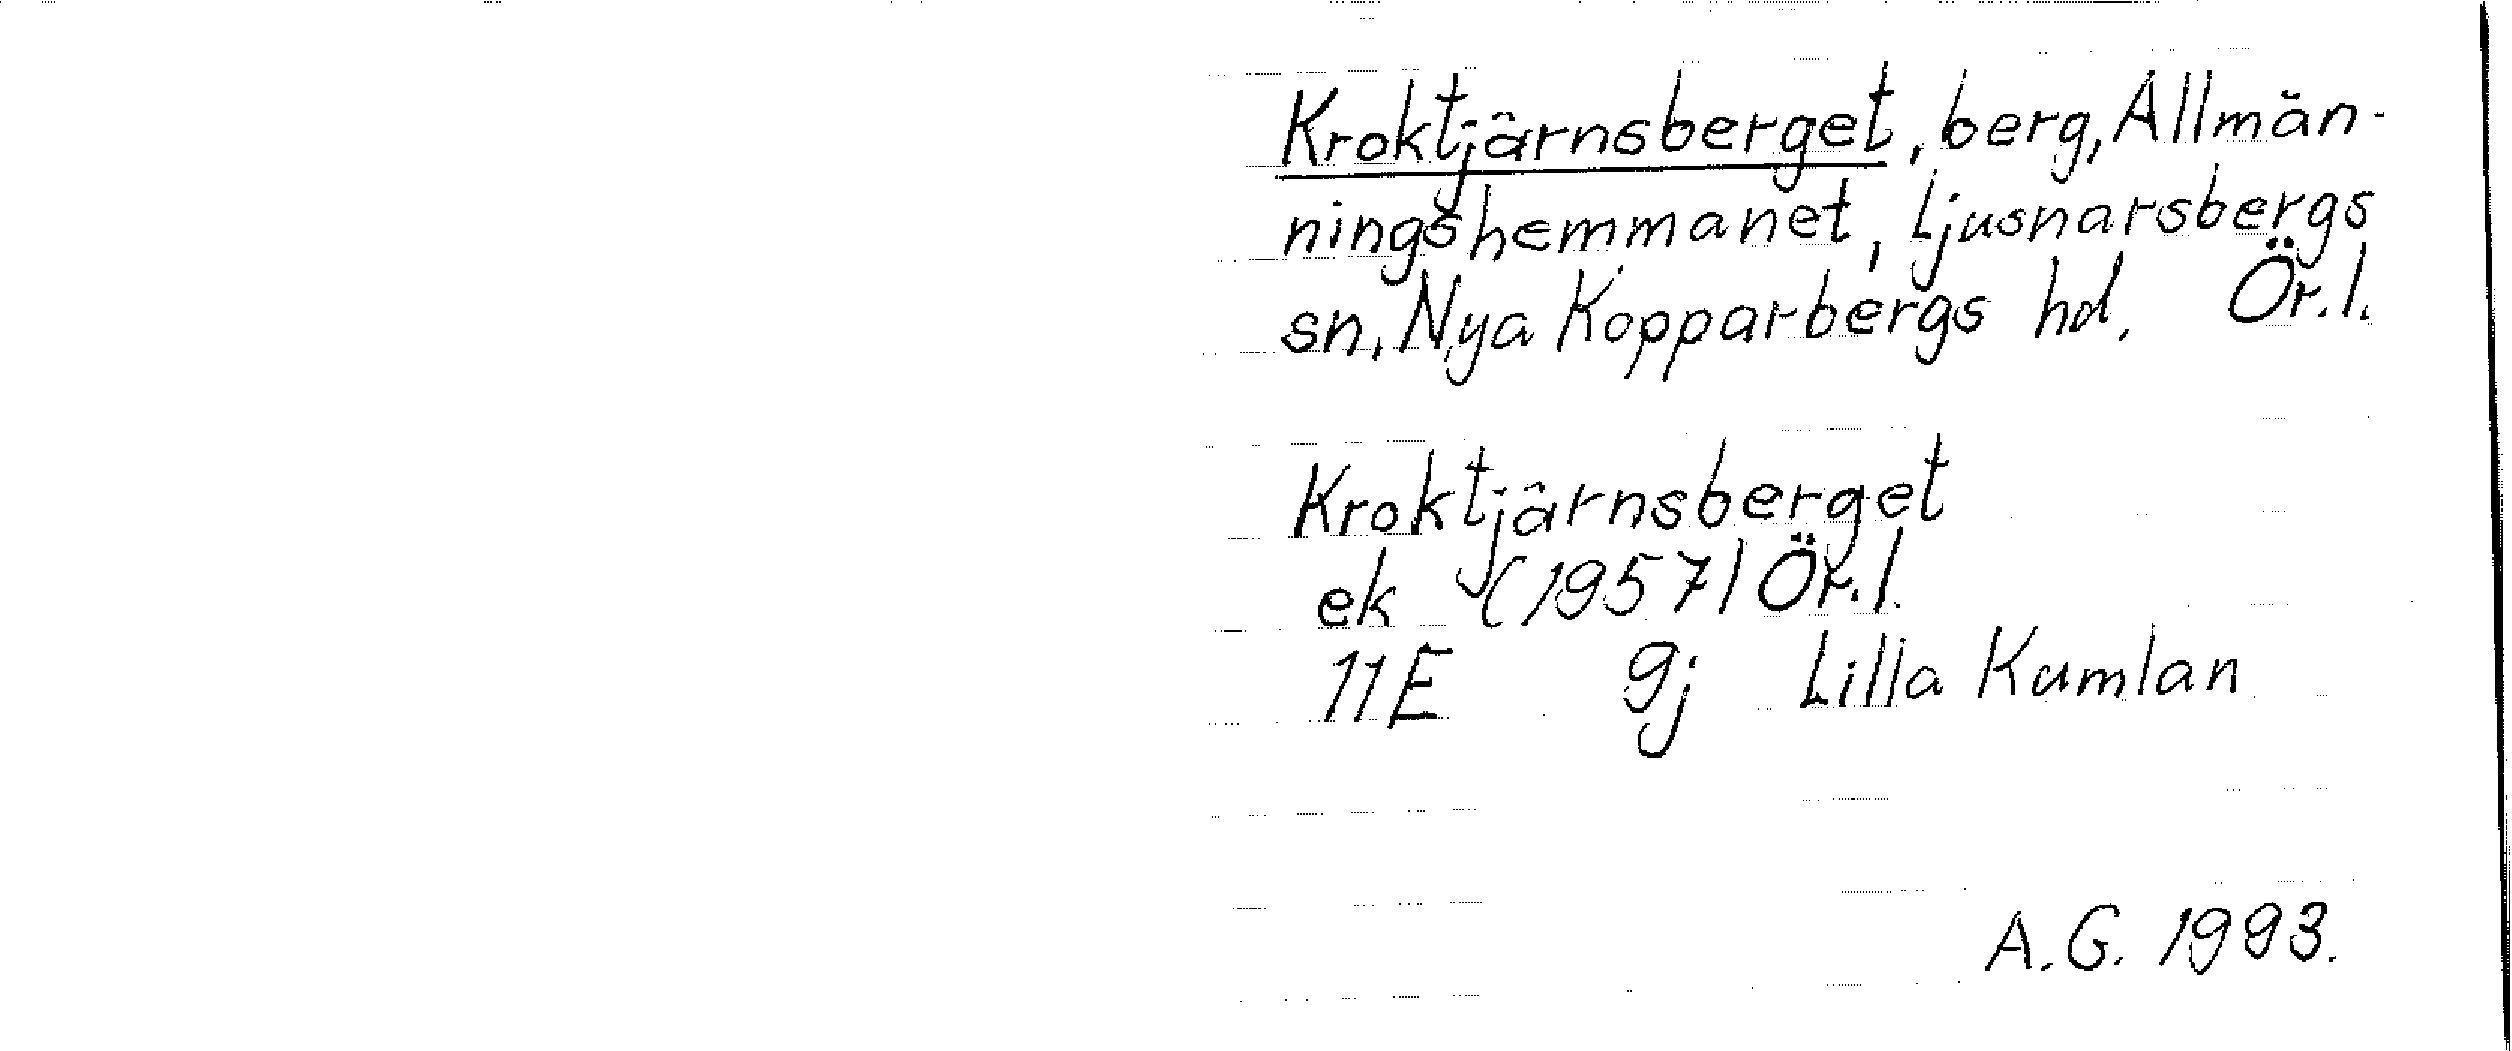 Kroktjärnsberget, berg, Allmän-
ningshemmanet, Ljusnarsbergs
sn, Nya Kopparbergs hd. Ör.l.
Kroktjärnsberget
ek (1957) Ör.l.
11E 9j Lilla Kumlan
A.G. 1993.